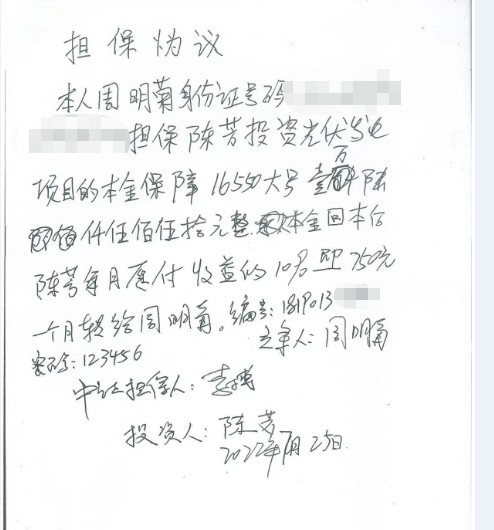 担保协议
本人周明菊身份证号码
担保陈芳投资光伏发电
项目的本金保障16550大号壹万陆
仟伍佰伍拾元整 本金回本后
陈芳每月应付收益的10% 即750元
一个月转给周明菊。编号:1819013
密码:123456 立单人:周明菊
中证担保人:李
投资人:陈芳
2022年7月25日